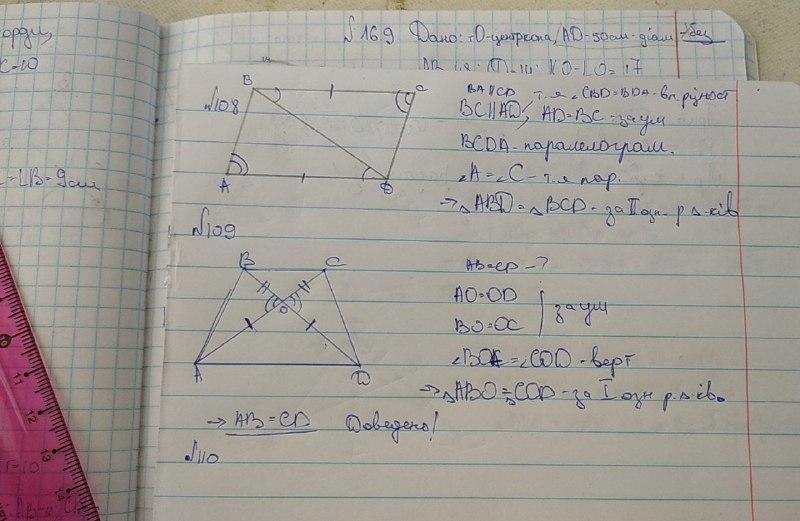 орди,
N 169 Дано: т.О-центр кола, AD-50см-діам
∠B=9см
N108
B
C
A
D
BA||CD
т.я ∠CBD=BDA-вн.різност
BC||AD, AD=BC-за ум
BCDA-паралелограм.
∠A=∠C-т.я пар.
→△ABD=△BCD-за II озн. р △-ків
N109
B
C
O
A
D
AB=CD-?
AO=OD
BO=OC
за ум
∠BOA=∠COD-верт
→△ABO=△COD-за I озн р.△-ків.
→ AB=CD Доведено!
N110
11
12
13
14